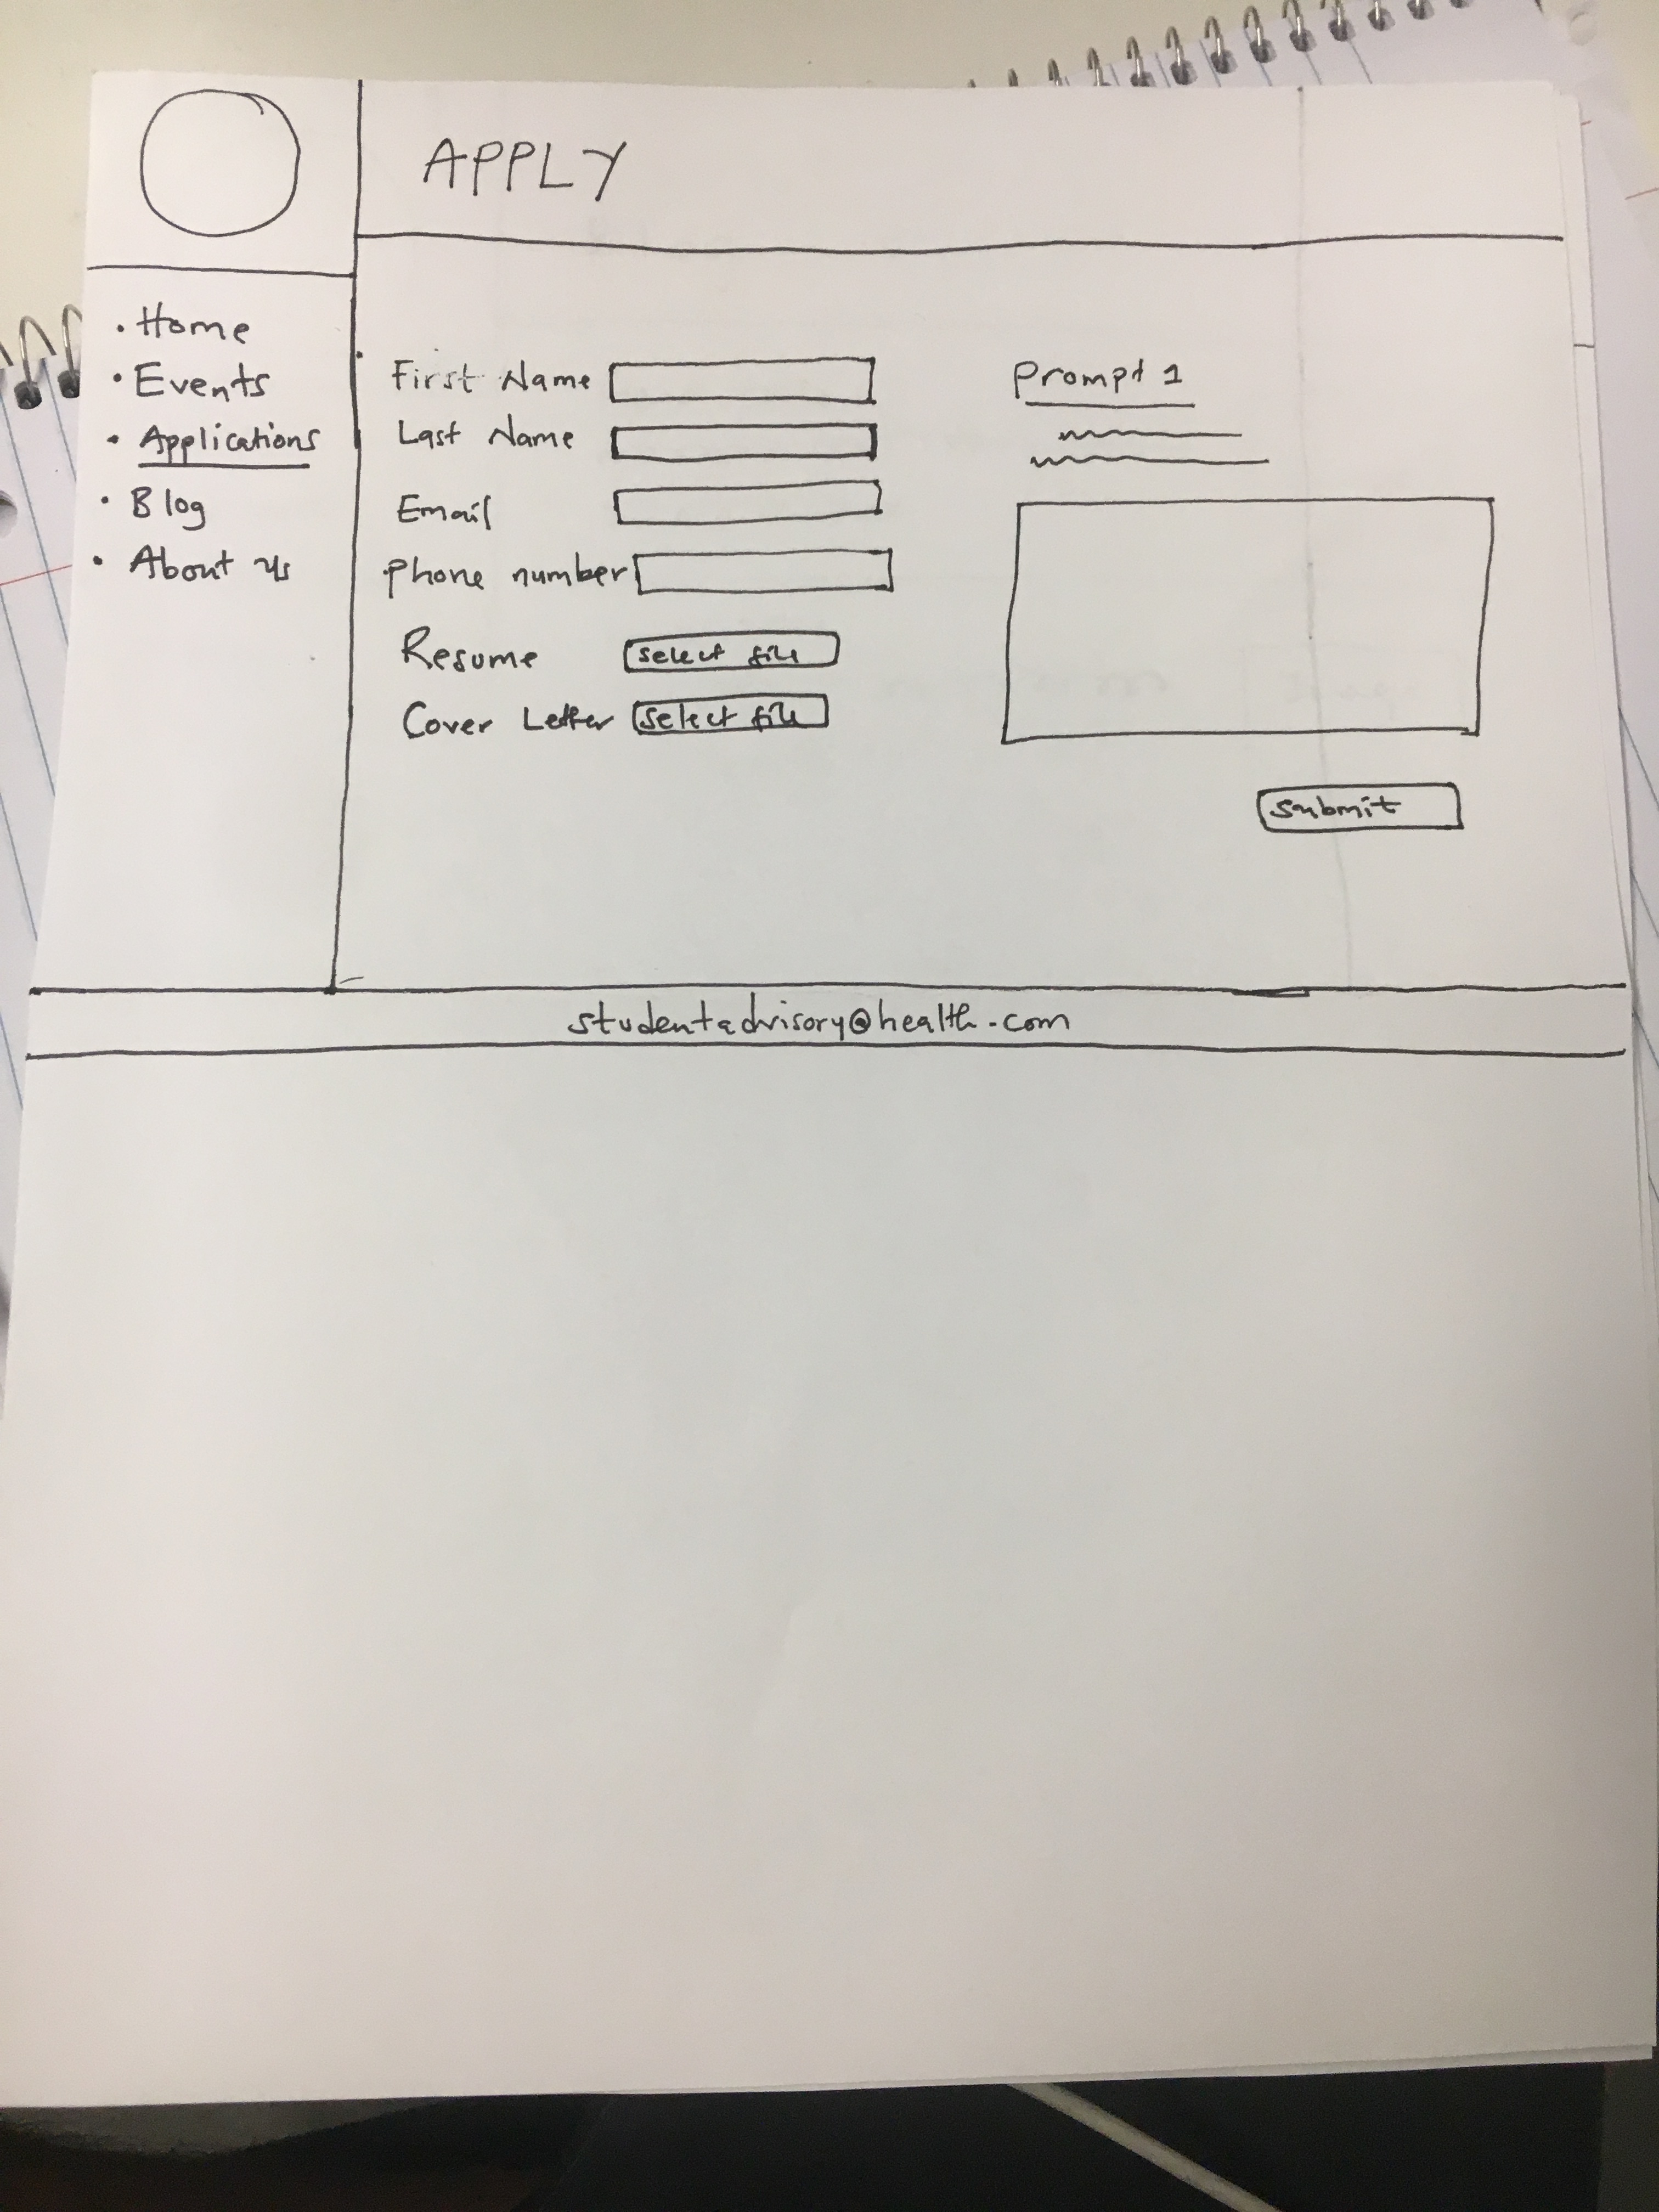 APPLY
• Home
• Events
• Applications
• Blog
• About us
First Name
Last Name
Email
Phone number
Resume select file
Cover Letter select file
Prompt 1
submit
studentadvisory@health.com